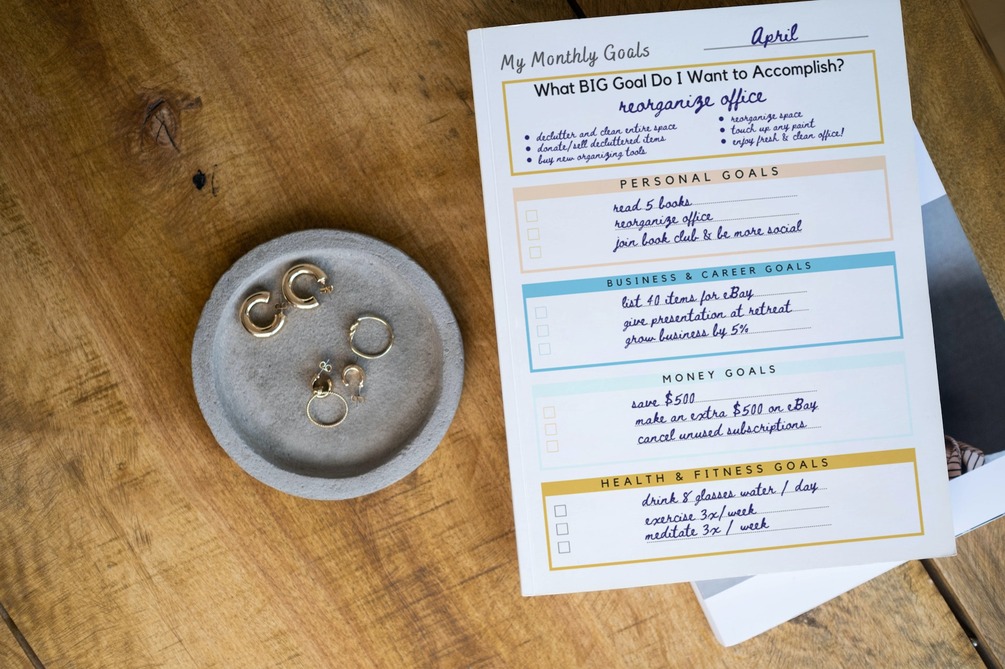 My Monthly Goals
April
What BIG Goal Do I Want to Accomplish?
reorganize office
• declutter and clean entire space
• donate/sell decluttered items
• buy new organizing tools
• reorganize space
• touch up any paint
• enjoy fresh & clean office!
PERSONAL GOALS
read 5 books
reorganize office
join book club & be more social
BUSINESS & CAREER GOALS
list 40 items for eBay
give presentation at retreat
grow business by 5%
MONEY GOALS
save $500
make an extra $500 on eBay
cancel unused subscriptions
HEALTH & FITNESS GOALS
drink 8 glasses water / day
exercise 3x/week
meditate 3x / week